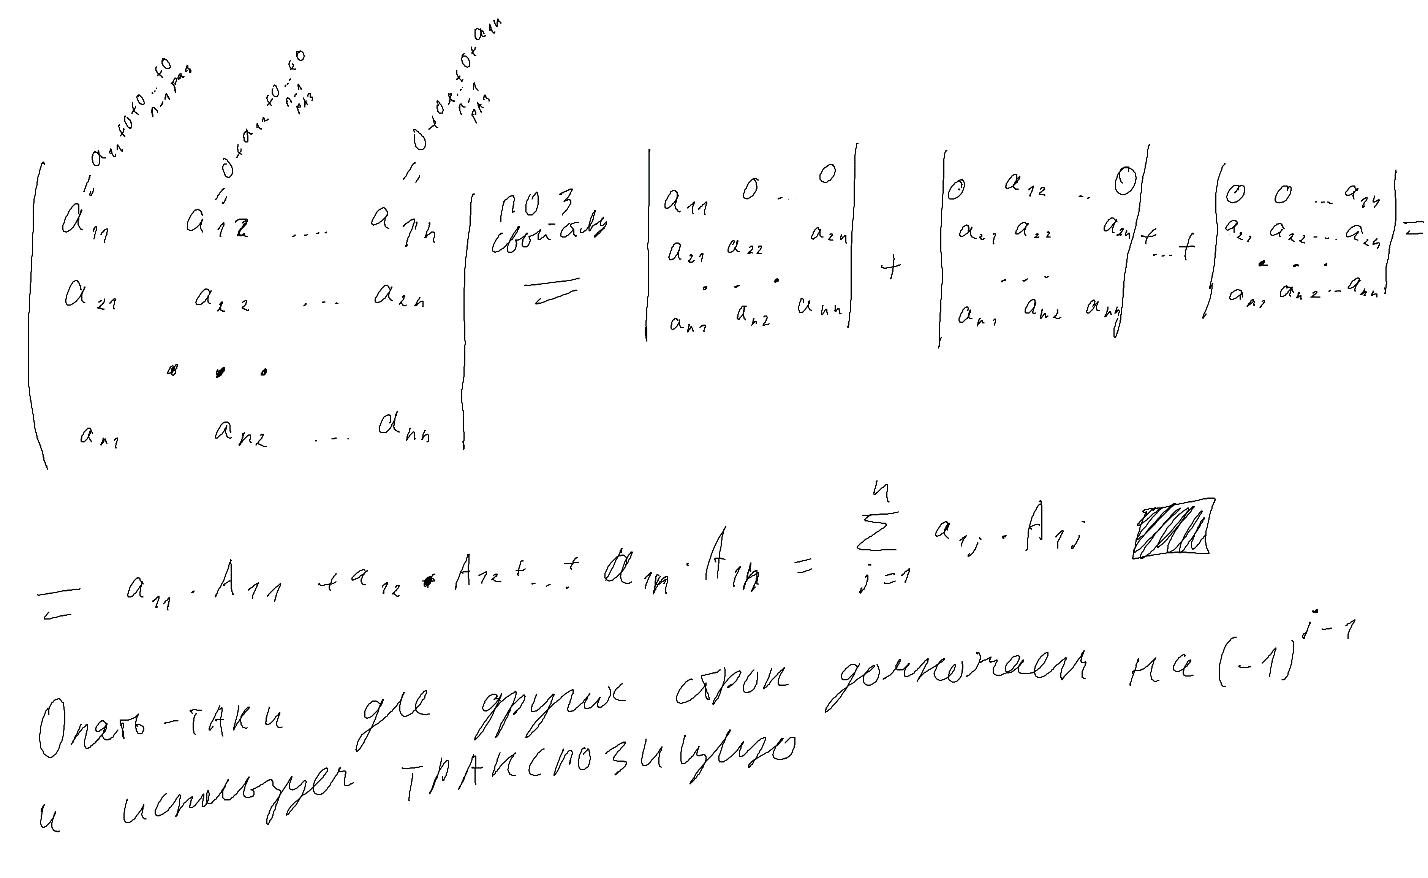 = a₁₁+0+0+0...+0
n-1 раз
= 0+a₁₂+0...+0
n-1
раз
= 0+0+...+0+a₁ₙ
n-1
раз
( a₁₁ a₁₂ .... a₁ₙ |
a₂₁ a₂₂ ... a₂ₙ
. . .
aₙ₁ aₙ₂ ... aₙₙ
по 3
свойству
=
| a₁₁ 0 .. 0 |
a₂₁ a₂₂ a₂ₙ
. . .
aₙ₁ aₙ₂ aₙₙ
+
| 0 a₁₂ .. 0 |
a₂₁ a₂₂ a₂ₙ
...
aₙ₁ aₙ₂ aₙₙ
+...+
| 0 0 ... a₁ₙ |
a₂₁ a₂₂ ... a₂ₙ
. . .
aₙ₁ aₙ₂ ... aₙₙ
=
= a₁₁·A₁₁ + a₁₂·A₁₂+...+ a₁ₙ·A₁ₙ = ∑ⁿⱼ₌₁ a₁ⱼ·A₁ⱼ
Опять-таки для других строк домножаем на (-1)^(i-1)
и используем транспозицию